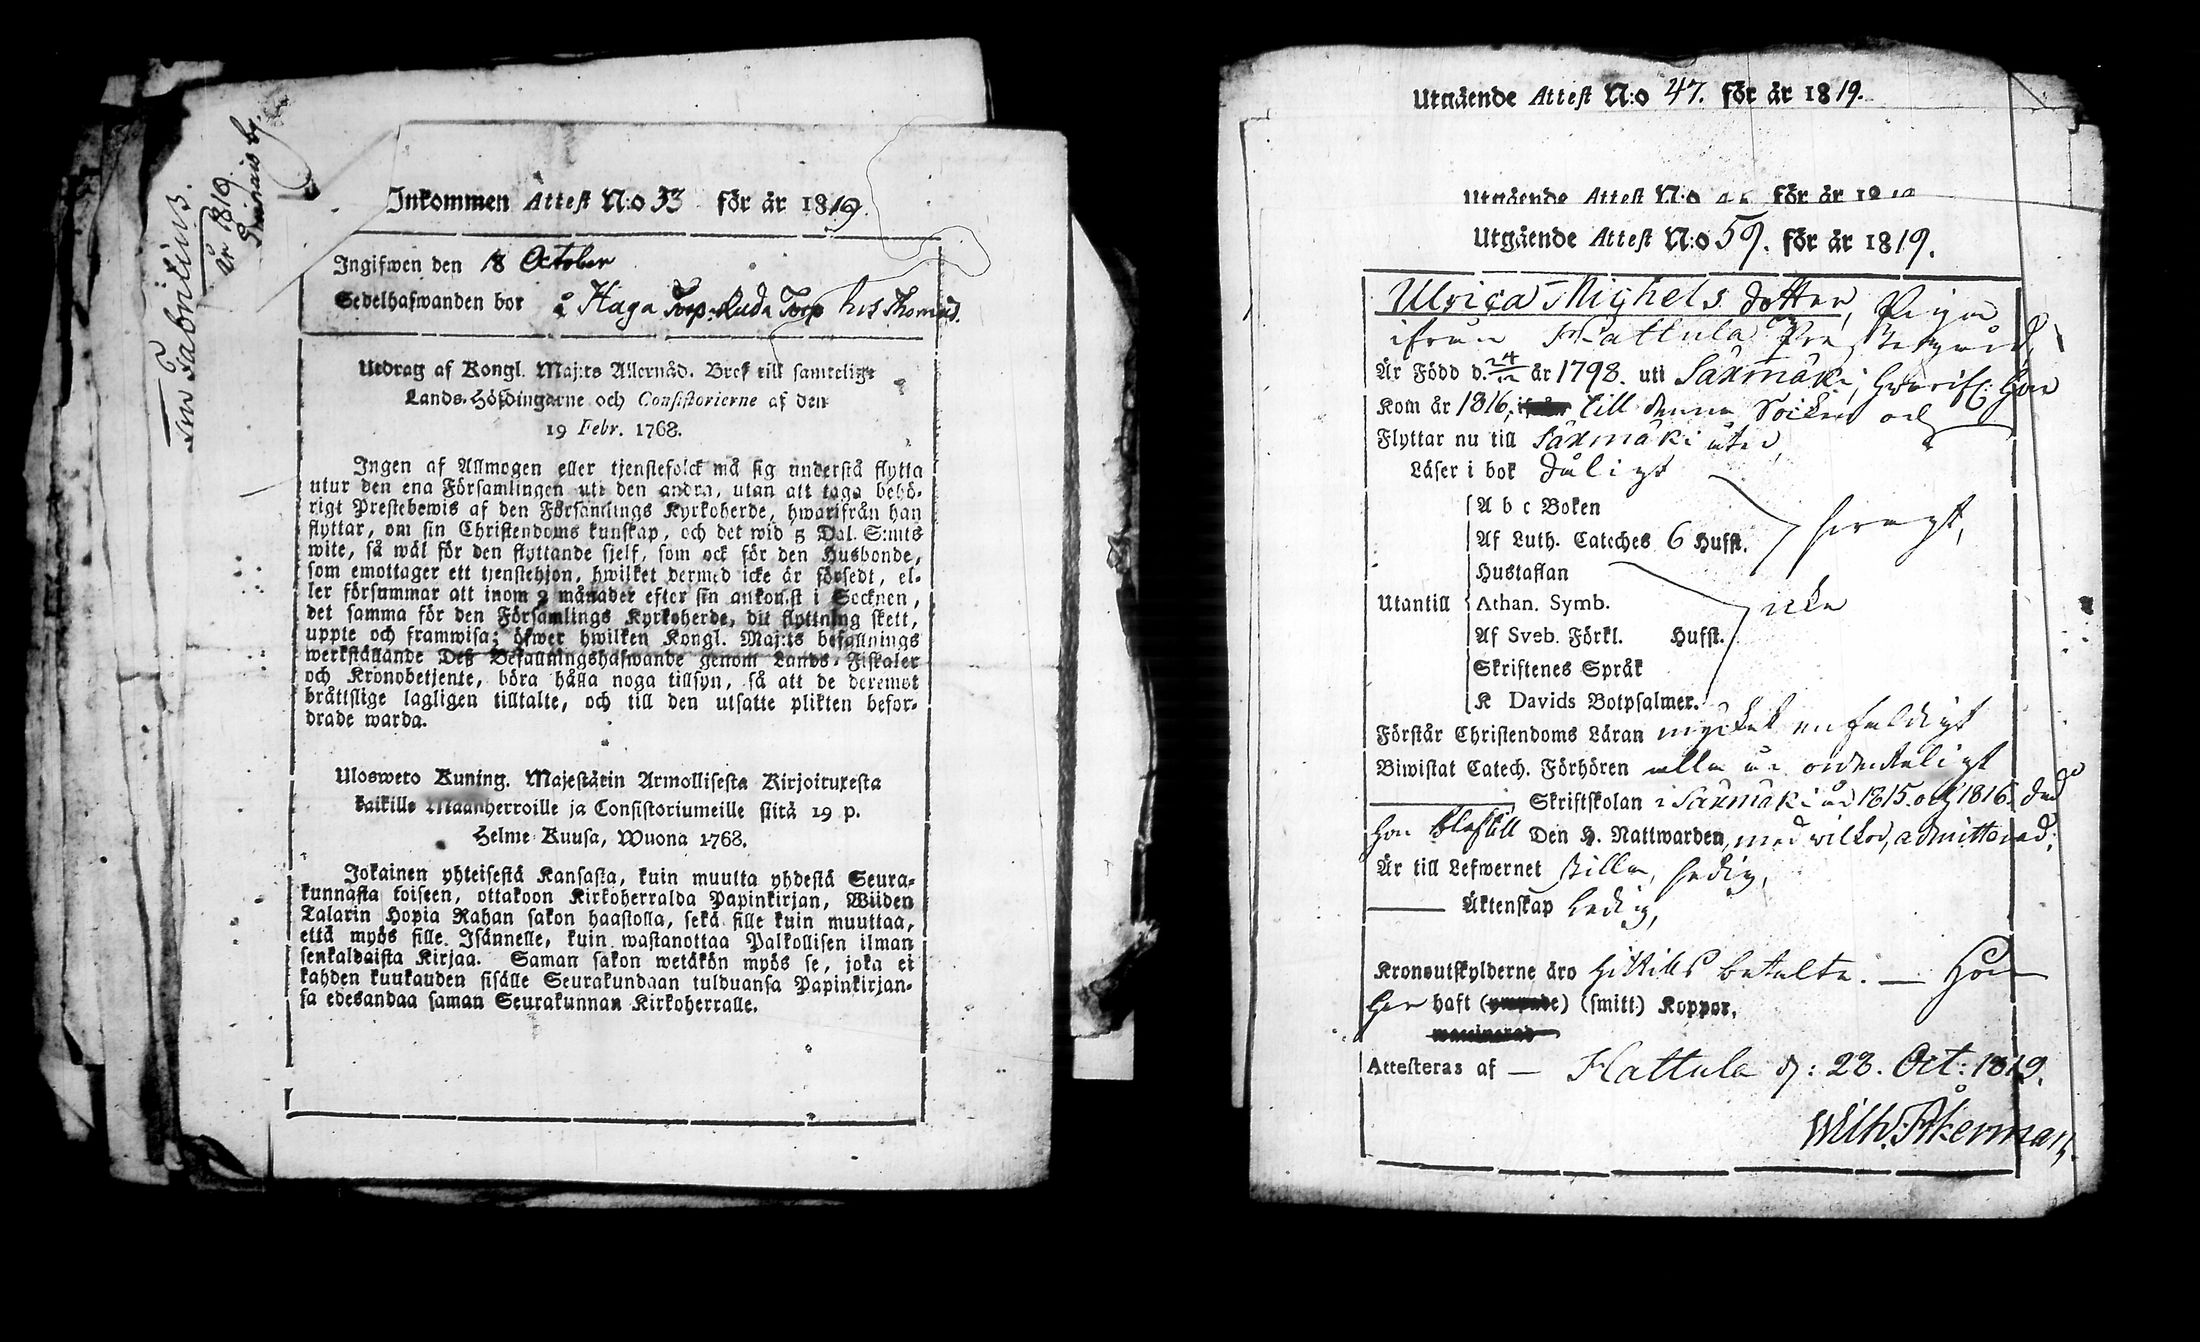 år 1819.
Inkommen Attest N:o 33 för år 1819.
Ingifwen den 18 October
Sedelhafwanden bor å Haga Torp. Ruda Torp hos Thomas.
Utdrag af Kongl. Maj:ts Allernåd. Bref till samtelige
Lands-Höfdingarne och Consistorierne af den
19 Febr. 1768.
Ingen af Allmogen eller tjenstefolck må sig understå flytta
utur den ena Församlingen uti den andra, utan att taga behö-
rigt Prestebewis af den Församlings Kyrkoherde, hwarifrån han
flyttar, om sin Christendoms kunskap, och det wid 5 Dal. S:mts
wite, så wäl för den flyttande sjelf, som ock för den Husbonde,
som emottager ett tjenstehjon, hwilket dermed icke är försedt, el-
ler försummar att inom 2 månader efter sin ankomst i Socknen,
det samma för den Församlings Kyrkoherde, dit flyttning skett,
uppte och framwisa; öfwer hwilken Kongl. Maj:ts befallnings
werkställande Deß Befallningshafwande genom Lands-Fiskaler
och Kronobetjente, böra hålla noga tillsyn, så att de deremot
bråttslige lagligen tilltalte, och till den utsatte plikten befor-
drade warda.
Ulosweto Kuning. Majestätin Armollisesta Kirjoituxesta
kaikille Maanherroille ja Consistoriumeille siitä 19 p.
Helme-Kuusa, Wuona 1768.
Jokainen yhteisestä Kansasta, kuin muutta yhdestä Seura-
kunnasta toiseen, ottakoon Kirkoherralda Papinkirjan, Wiiden
Talarin Hopia Rahan sakon haastolla, sekä sille kuin muuttaa,
että myös sille Isännelle, kuin wastanottaa Palkollisen ilman
senkaldaista Kirjaa. Saman sakon wetäkön myös se, joka ei
kahden kuukauden sisälle Seurakundaan tulduansa Papinkirjan-
sa edesandaa saman Seurakunnan Kirkoherralle.
Utgående Attest N:o 47. för år 1819.
Utgående Attest N:o för år 1819
Utgående Attest N:o 59. för år 1819.
Ulrica Michels dotter, Pigan
ifrån Hattula Prestegård
Är Född d. 24/12 år 1798. uti Säxmäki, hwarifr: hon
Kom år 1816, till denna Socken och
Flyttar nu till Säxmäki åter,
Läser i bok dåligt
A b c Boken
Af Luth. Cateches 6 Hufst.
Hustaflan
Utantill Athan. Symb. icke
Af Sveb. Förkl. Hufst.
Skriftenes Språk
K Davids Botpsalmer.
Förstår Christendoms Läran mycket enfaldigt
Biwistat Catech. Förhören alla år ordenteligt
Skriftskolan i Säxmäki år 1815. och 1816. då
hon blef till Den H. Nattwarden, med wilkor, admitterad.
Är till Lefwernet stilla, sedig,
Äktenskap ledig,
Kronoutskylderne äro hittills betalta. — Hon
har haft (ympade) (smitt) Koppor.
waccinerad
Attesteras af — Hattula d: 23. Oct: 1819.
Wilh. Åkerman.